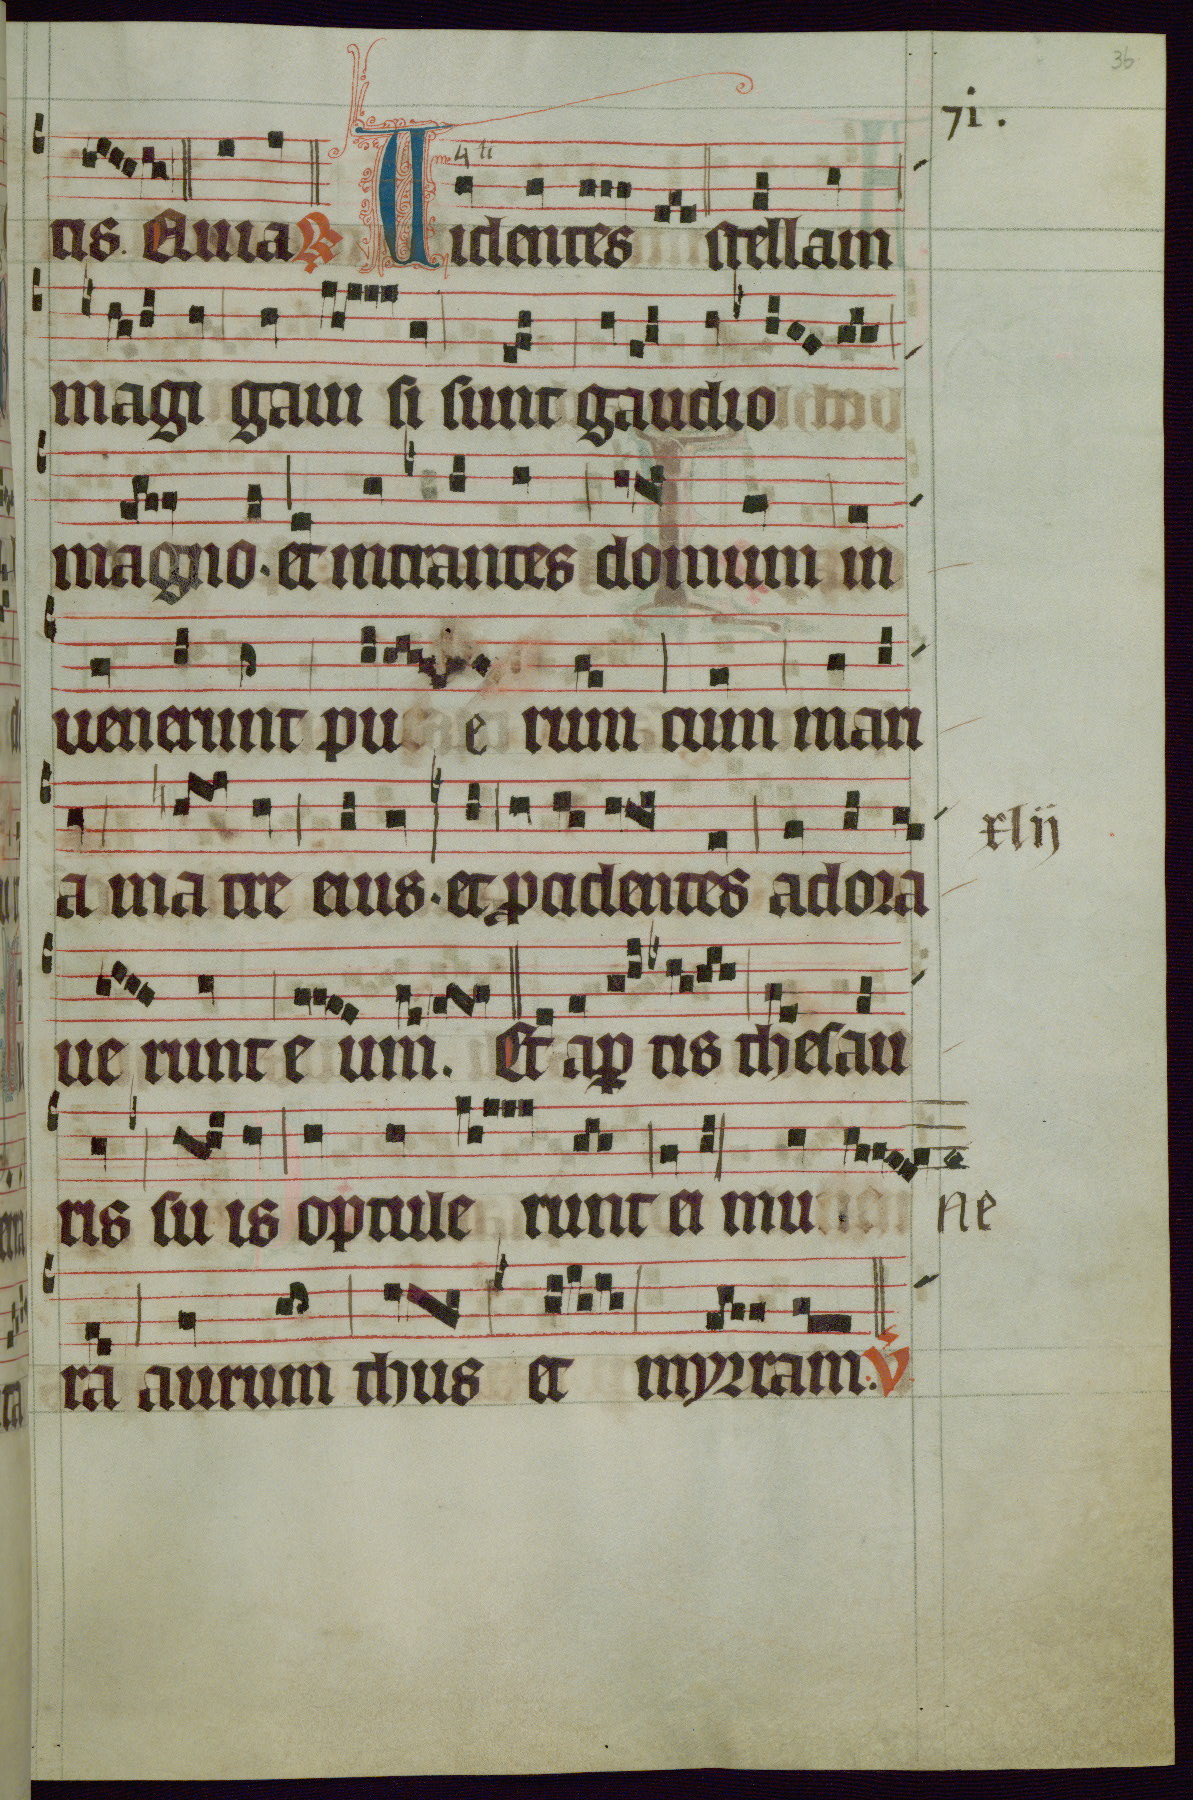 36
71.
m 4 ti
tis. Auia R Uidentes stellam
magi gaui si sunt gaudio
magno. et intrantes domum in
uenerunt pu e rum cum mari
xlij
a ma tre eius. et pcidentes adora
ue runt e um. Et ap tis thesau
ris su is optule runt ei mu ne
ra aurum thus et myrram. V